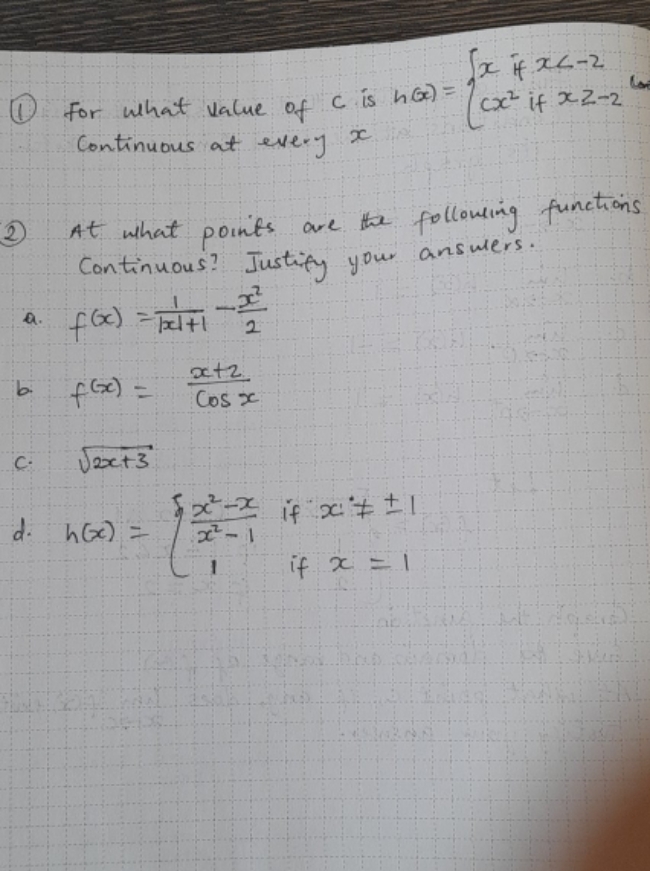 ① For what value of c is h(x) = { x if x < -2
cx² if x ≥ -2
Continuous at every x
② At what points are the following functions
Continuous? Justify your answers.
a. f(x) = 1/(|x|+1) - x²/2
b f(x) = (x+2)/(Cos x)
c. √(2x+3)
d. h(x) = { (x²-x)/(x²-1) if x ≠ ±1
1 if x = 1